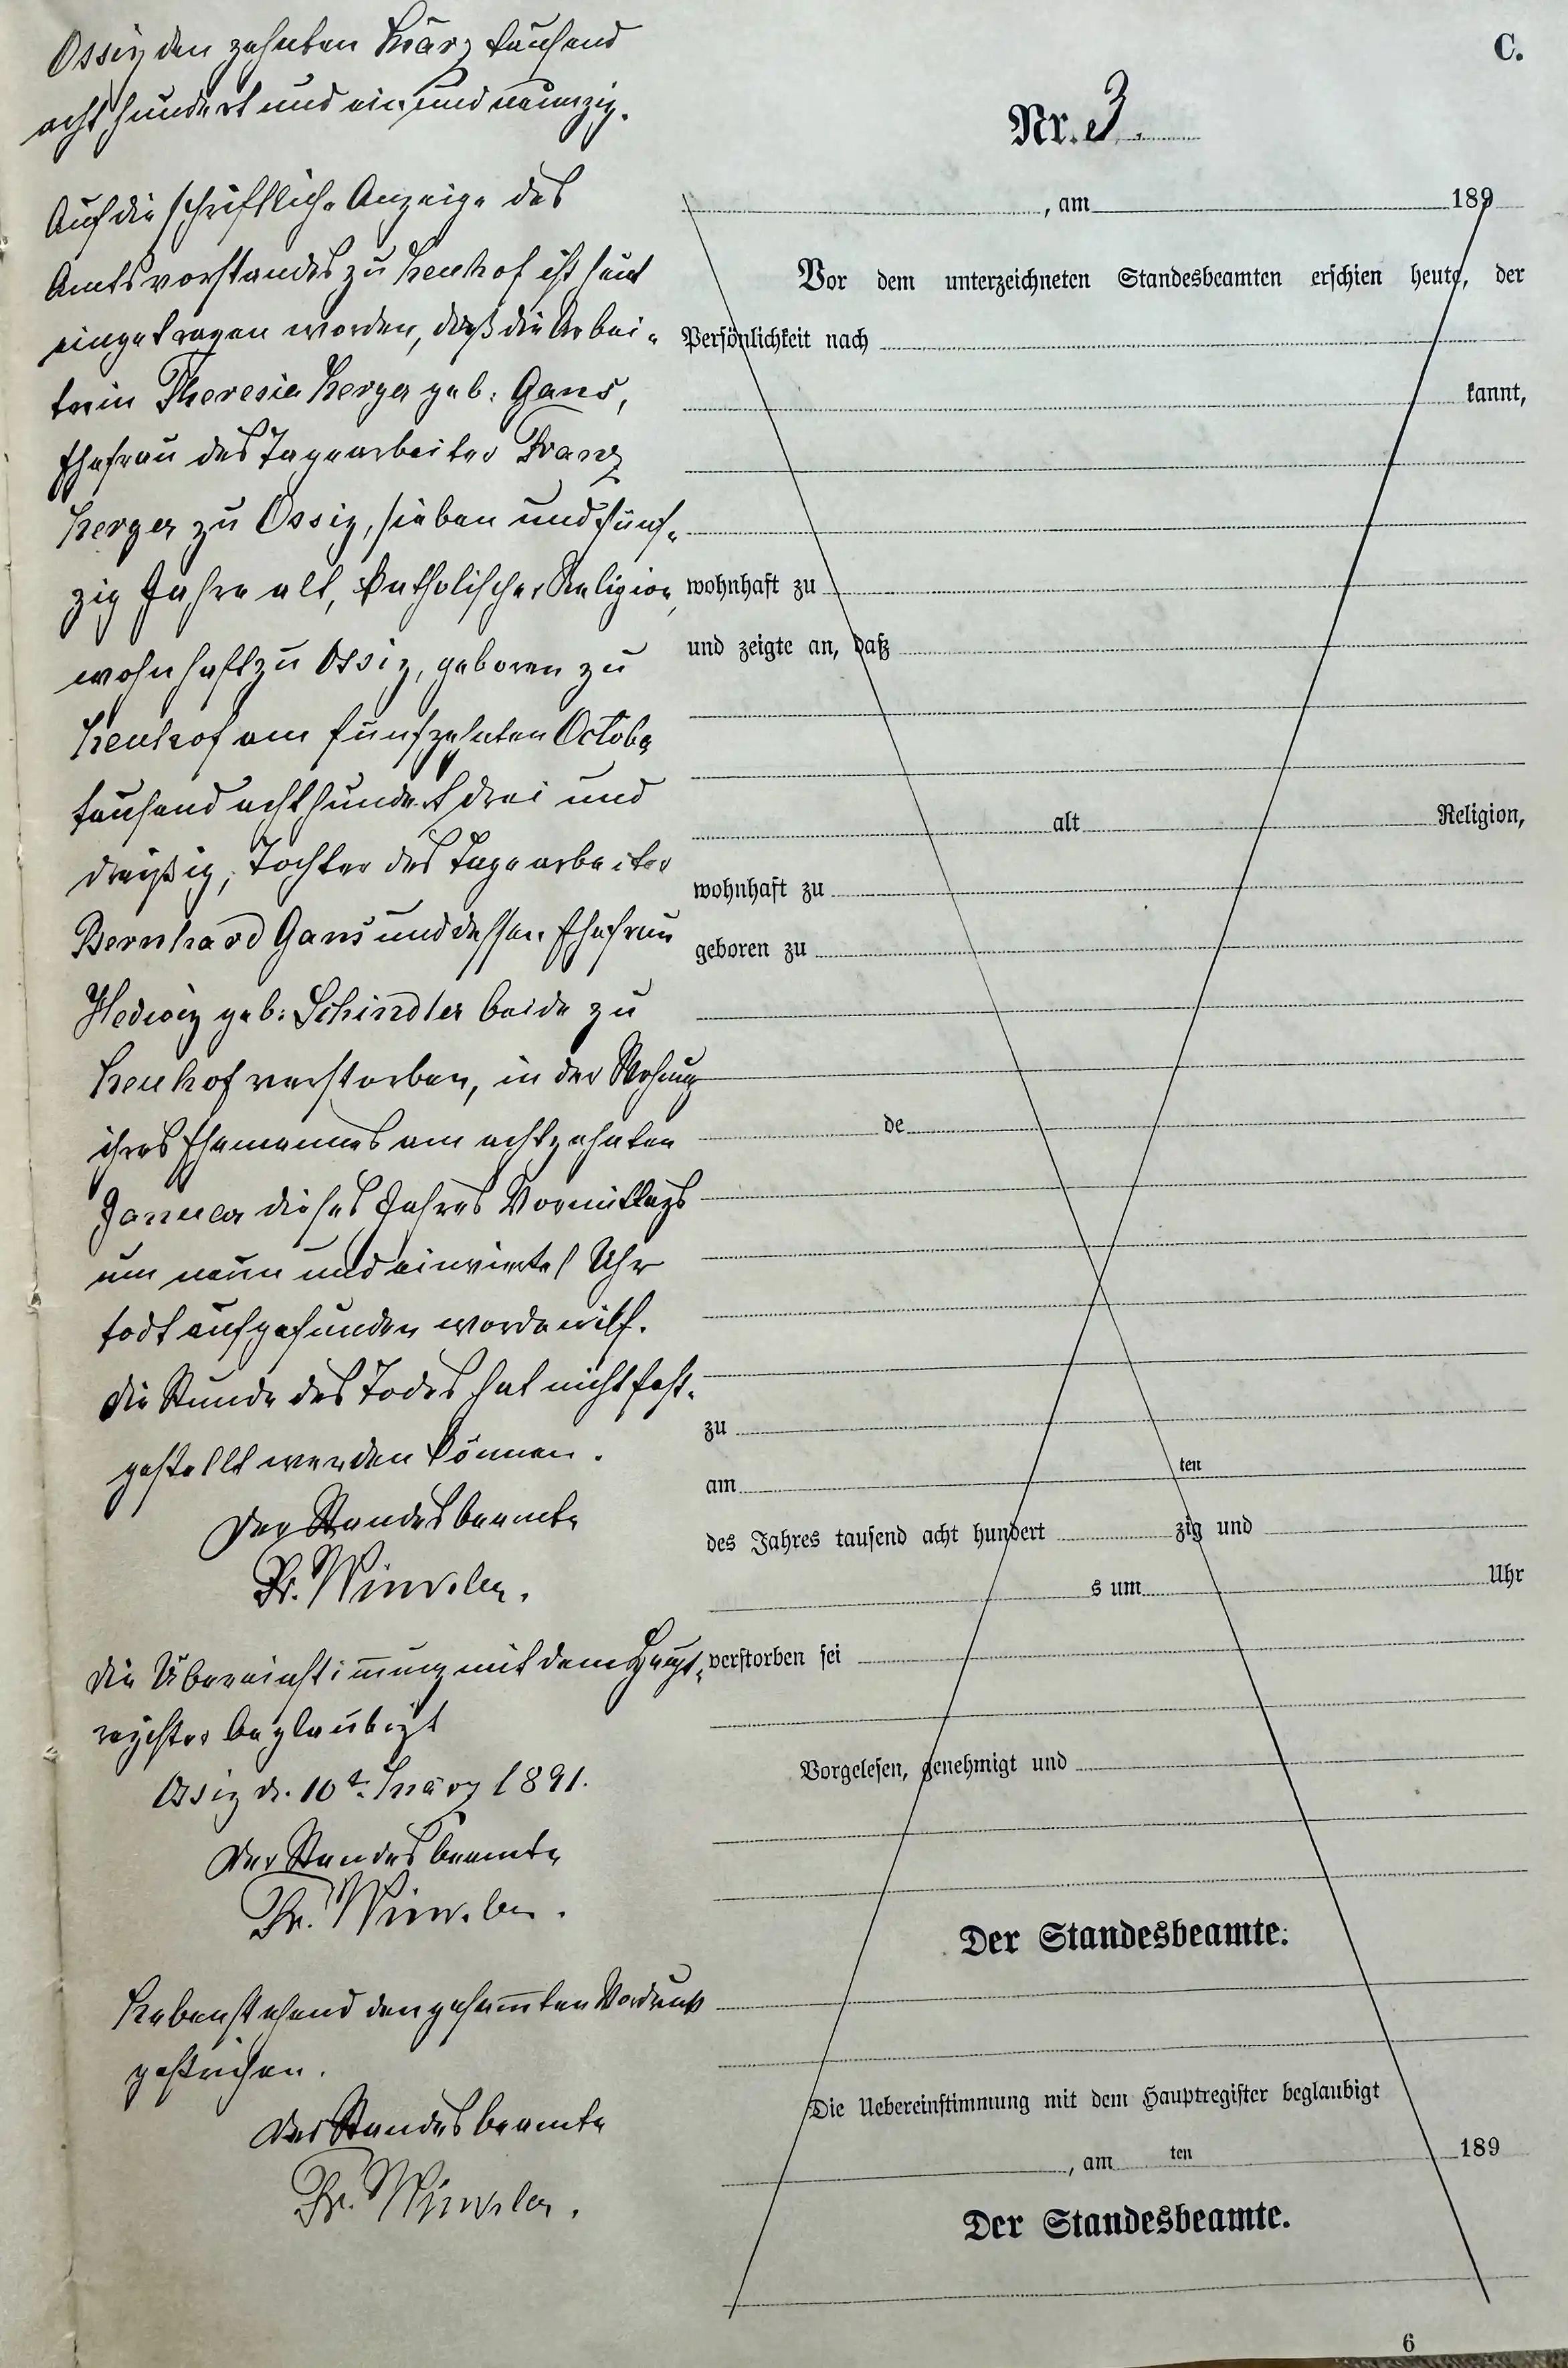 Ossig den zehnten März tausend
acht hundert und ein und neunzig.
Auf die schriftliche Anzeige des
Amtsvorstandes zu Neuhof ist heut
eingetragen worden, daß die Arbei-
terin Theresia Herzer geb. Gans,
Ehefrau des Tagearbeiter Franz
Herzer zu Ossig, sieben und fünf-
zig Jahre alt, katholischer Religion,
wohnhaft zu Ossig, geboren zu
Neuhof am fünfzehnten October
tausend acht hundert drei und
dreißig, Tochter des Tagearbeiter
Bernhard Gans und dessen Ehefrau
Hedwig geb. Schindler beide zu
Neuhof verstorben, in der Wohnung
ihres Ehemannes am achtzehnten
Januar dieses Jahres Vormittags
um neun und einviertel Uhr
todt aufgefunden worden ist.
Die Stunde des Todes hat nicht fest-
gestellt werden können.
Der Standesbeamte
Fr. Winkler.
Die Übereinstimmung mit dem Haupt-
register beglaubigt
Ossig d. 10t. März 1891.
Der Standesbeamte
Fr. Winkler.
Nebenstehend den gesammten Vordruck
gestrichen.
Der Standesbeamte
Fr. Winkler.
C.
Nr. 3.
, am 189
Vor dem unterzeichneten Standesbeamten erschien heute, der
Persönlichkeit nach
kannt,
wohnhaft zu
und zeigte an, daß
alt Religion,
wohnhaft zu
geboren zu
de
zu
am ten
des Jahres tausend acht hundert zig und
s um Uhr
verstorben sei
Vorgelesen, genehmigt und
Der Standesbeamte.
Die Uebereinstimmung mit dem Hauptregister beglaubigt
, am ten 189
Der Standesbeamte.
6